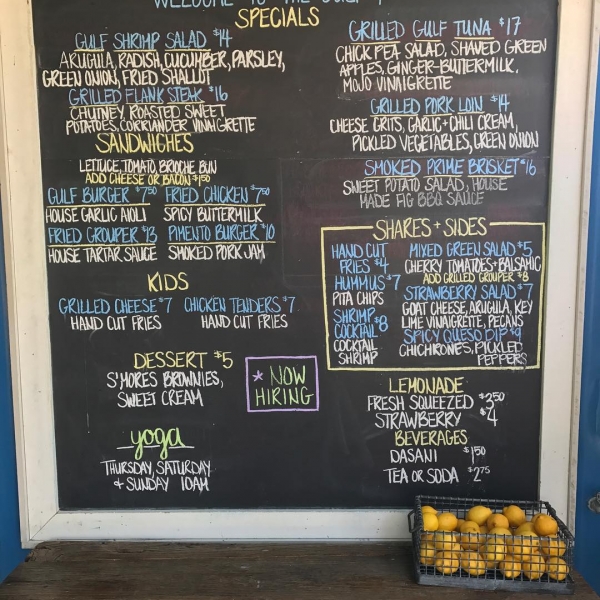 WELCOME TO THE GULF
SPECIALS
GULF SHRIMP SALAD $14
ARUGULA, RADISH, CUCUMBER, PARSLEY,
GREEN ONION, FRIED SHALLOT
GRILLED FLANK STEAK $16
CHUTNEY, ROASTED SWEET
POTATOES, CORRIANDER VINNAIGRETTE
GRILLED GULF TUNA $17
CHICK PEA SALAD, SHAVED GREEN
APPLES, GINGER-BUTTERMILK,
MOJO VINNAIGRETTE
GRILLED PORK LOIN $14
CHEESE GRITS, GARLIC + CHILI CREAM,
PICKLED VEGETABLES, GREEN ONION
SMOKED PRIME BRISKET $16
SWEET POTATO SALAD, HOUSE
MADE FIG BBQ SAUCE
SANDWICHES
LETTUCE, TOMATO, BRIOCHE BUN
ADD CHEESE OR BACON $1.50
GULF BURGER $7.50 FRIED CHICKEN $7.50
HOUSE GARLIC AIOLI SPICY BUTTERMILK
FRIED GROUPER $13 PIMENTO BURGER $10
HOUSE TARTAR SAUCE SMOKED PORK JAM
KIDS
GRILLED CHEESE $7 CHICKEN TENDERS $7
HAND CUT FRIES HAND CUT FRIES
DESSERT $5
S'MORES BROWNIES,
SWEET CREAM
* NOW
HIRING
yoga
THURSDAY, SATURDAY
+ SUNDAY 10AM
SHARES + SIDES
HAND CUT
FRIES $4
HUMMUS $7
PITA CHIPS
SHRIMP
COCKTAIL $8
COCKTAIL
SHRIMP
MIXED GREEN SALAD $5
CHERRY TOMATOES + BALSAMIC
ADD GRILLED GROUPER $8
STRAWBERRY SALAD $7
GOAT CHEESE, ARUGULA, KEY
LIME VINAIGRETTE, PECANS
SPICY QUESO DIP $9
CHICHIRONES, PICKLED
PEPPERS
LEMONADE
FRESH SQUEEZED $3.50
STRAWBERRY $4
BEVERAGES
DASANI $1.50
TEA OR SODA $2.75